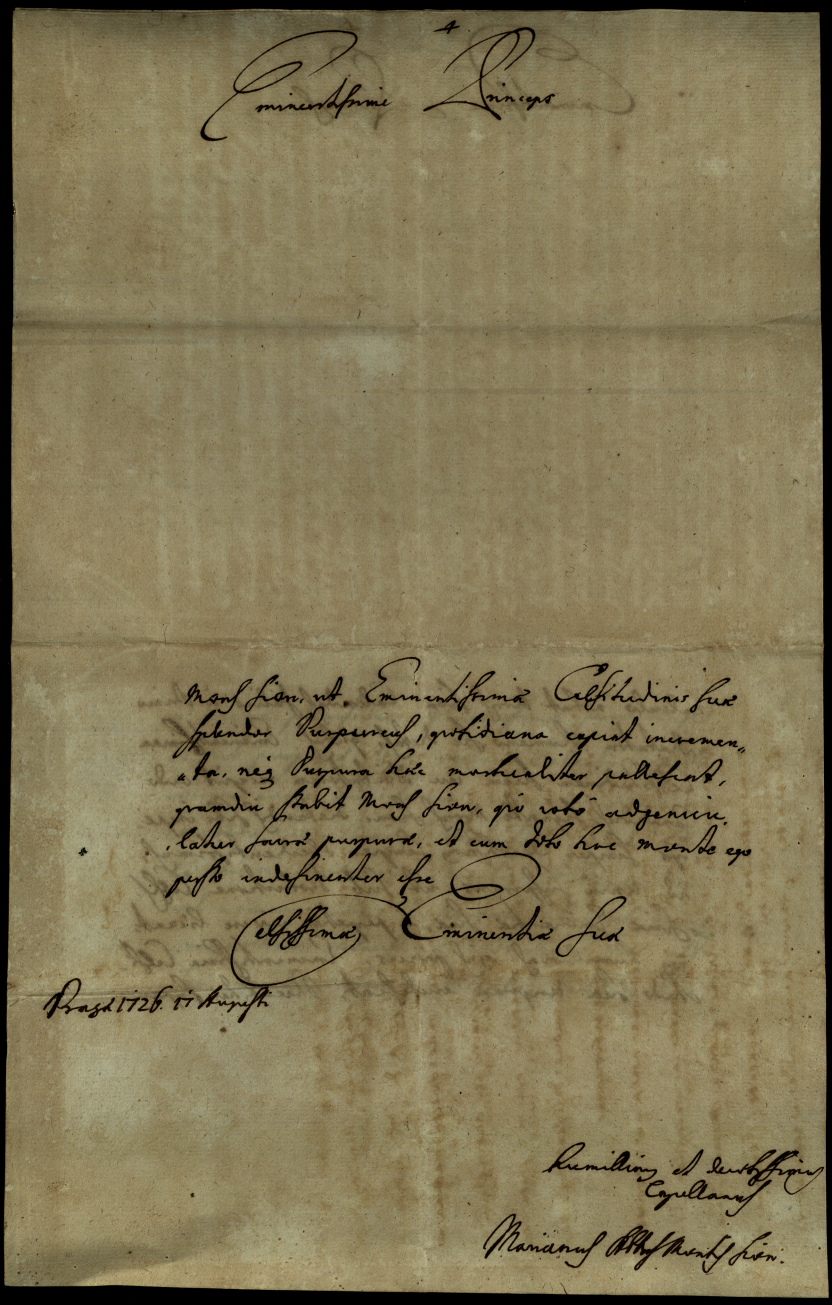 4
Eminentissime Princeps
Mons Sion, ut Eminentissimæ Celsitudinis Suæ
splendor Purpureus, quotidiana capiat incremen„
„ta, neq Purpura hæc mortualiter pallescat,
quamdiu stabit Mons Sion, qui adgenicu„
„latur sacræ purpuræ, et cum toto hoc monte ego
persto indesinenter esse
Celsissimæ Eminentiæ Suæ
Pragæ 1726. 17 Augusti
humillimus et devotissimus
Capellanus
Marianus Abbas Montis Sion.